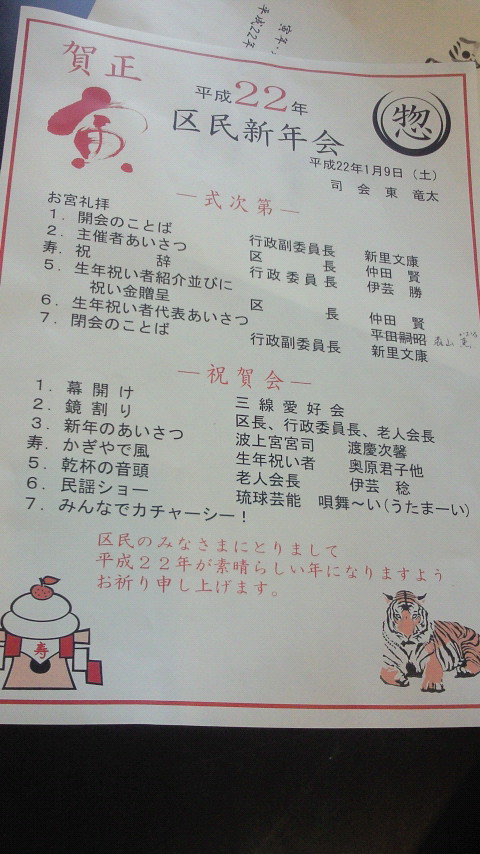 平成22年
賀正
寅
平成22年
惣
区民新年会
平成22年1月9日（土）
司会 東 竜太
―式次第―
お宮礼拝
1．開会のことば 行政副委員長 新里文庫
2．主催者あいさつ 区長 仲田 賢
寿．祝辞 行政委員長 伊芸 勝
5．生年祝い者紹介並びに
祝い金贈呈 区長 仲田 賢
6．生年祝い者代表あいさつ 平田嗣昭
7．閉会のことば 行政副委員長 新里文庫
―祝賀会―
1．幕開け 三線愛好会
2．鏡割り 区長、行政委員長、老人会長
3．新年のあいさつ 波上宮宮司 渡慶次馨
寿．かぎやで風 生年祝い者 奥原君子他
5．乾杯の音頭 老人会長 伊芸 稔
6．民謡ショー 琉球芸能 唄舞〜い（うたまーい）
7．みんなでカチャーシー！
区民のみなさまにとりまして
平成２２年が素晴らしい年になりますよう
お祈り申し上げます。
寿